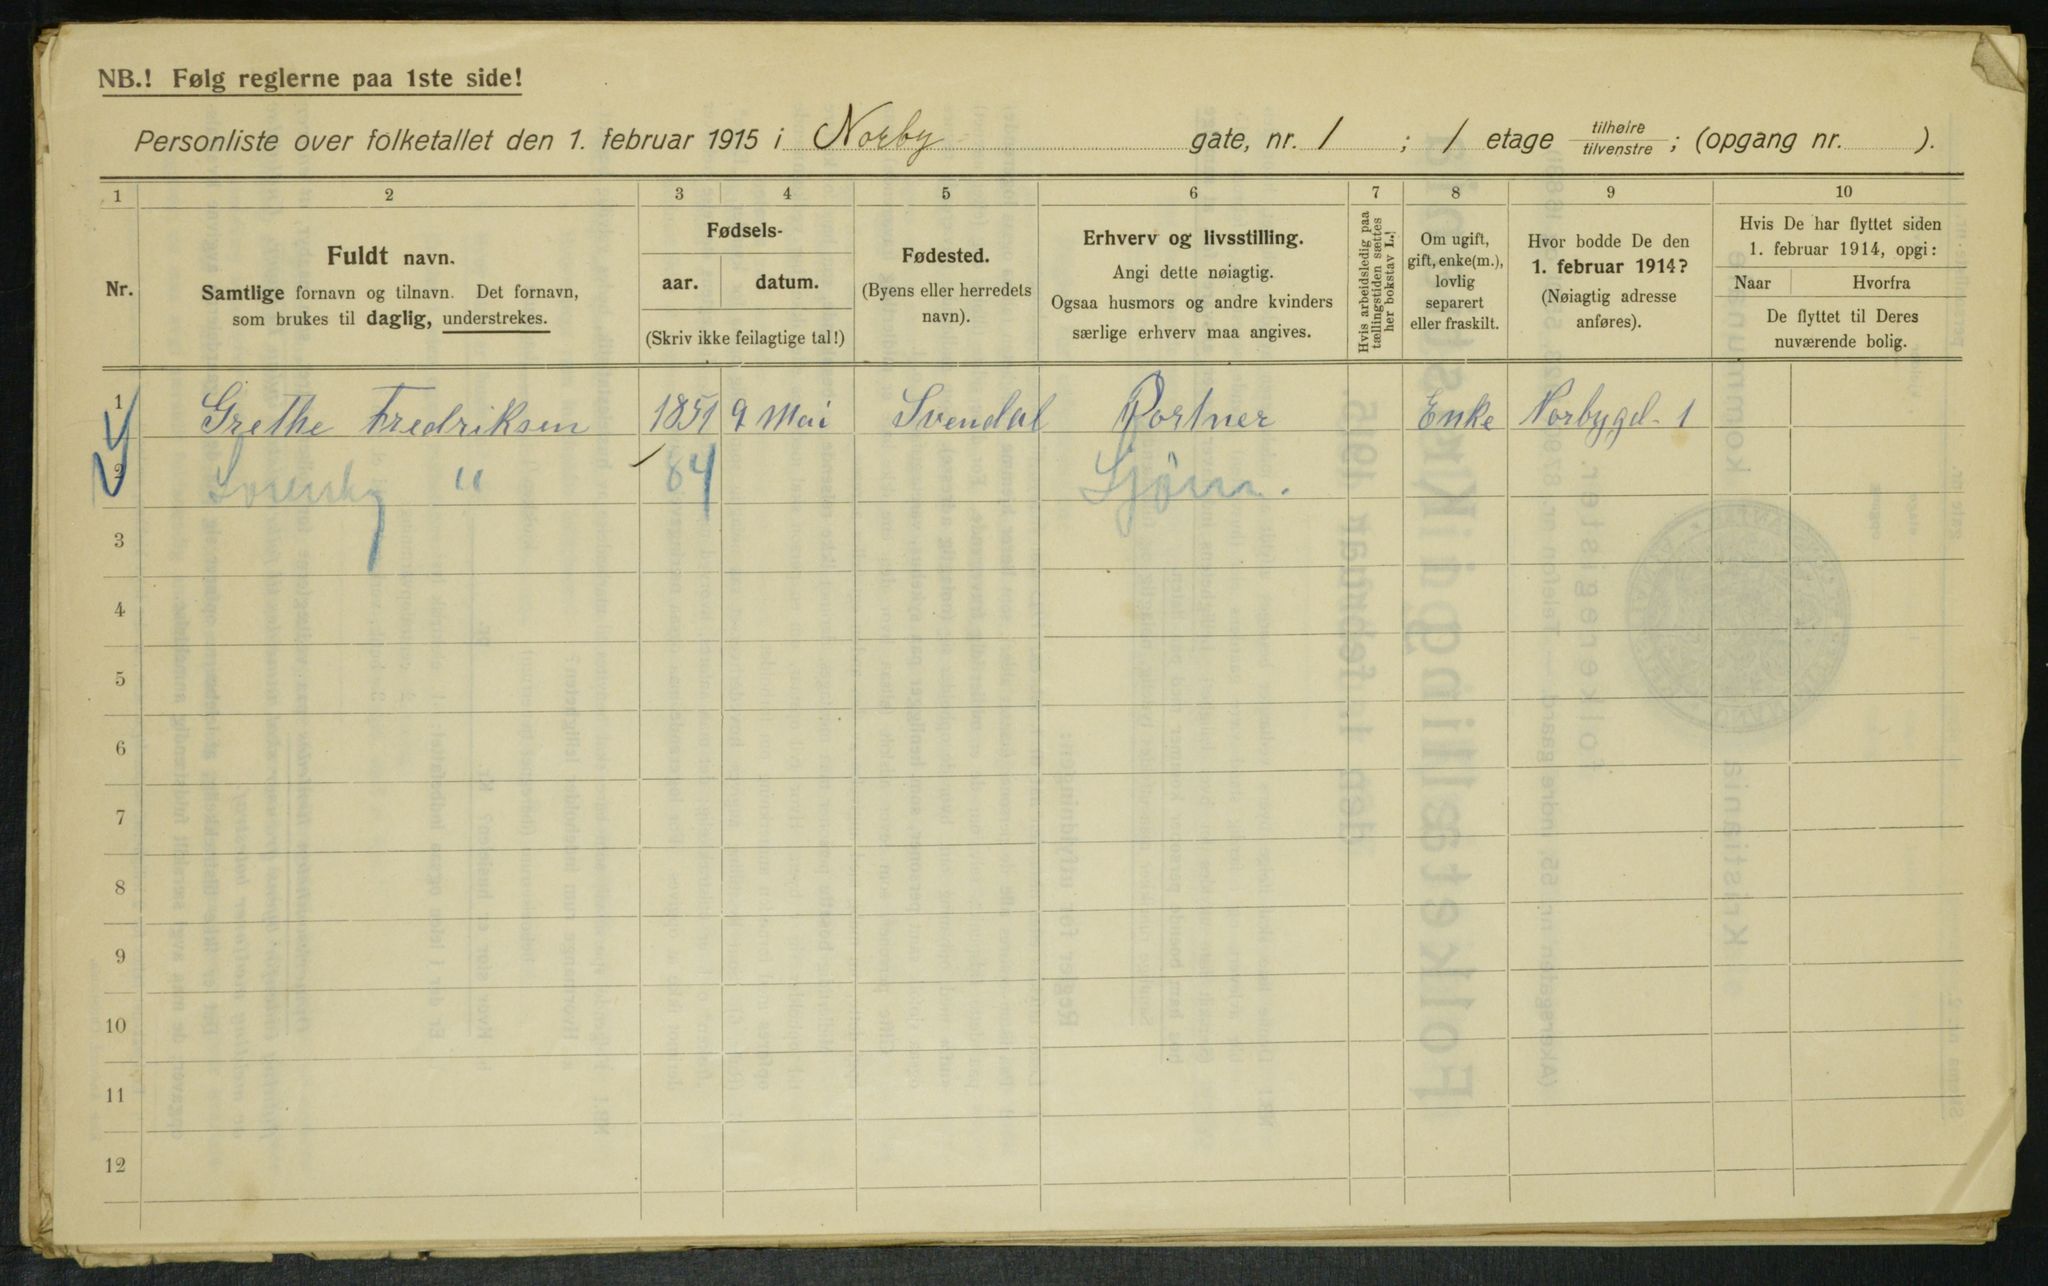 NB.! Følg reglerne paa 1ste side!
Personliste over folketallet den 1. februar 1915 i Norby gate, nr. 1 ; 1 etage tilhøire tilvenstre ; (opgang nr. ).
1 2 3 4 5 6 7 8 9 10
Nr.
Fuldt navn.
Samtlige fornavn og tilnavn. Det fornavn,
som brukes til daglig, understrekes.
Fødsels-
aar. datum.
(Skriv ikke feilagtige tal!)
Fødested.
(Byens eller herredets
navn).
Erhverv og livsstilling.
Angi dette nøiagtig.
Ogsaa husmors og andre kvinders
særlige erhverv maa angives.
Hvis arbeidsledig paa
tællingstiden sættes
her bokstav L.!
Om ugift,
gift, enke(m.),
lovlig
separert
eller fraskilt.
Hvor bodde De den
1. februar 1914?
(Nøiagtig adresse
anføres).
Hvis De har flyttet siden
1. februar 1914, opgi:
Naar Hvorfra
De flyttet til Deres
nuværende bolig.
1 Grethe Fredriksen 1851 9 Mai Svendal Portner Enke Norbygd. 1
2 " 84
3
4
5
6
7
8
9
10
11
12